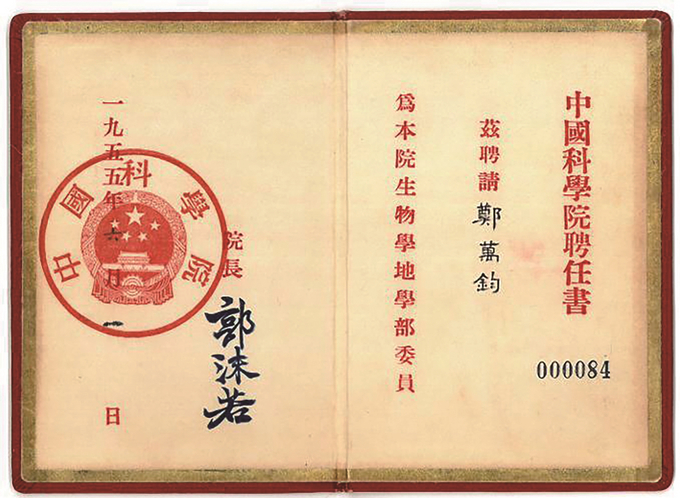 中國科學院聘任書
000084
茲聘請鄭萬鈞
爲本院生物學地學部委員
院長
郭沫若
中國科學院
一九五五年六月一日